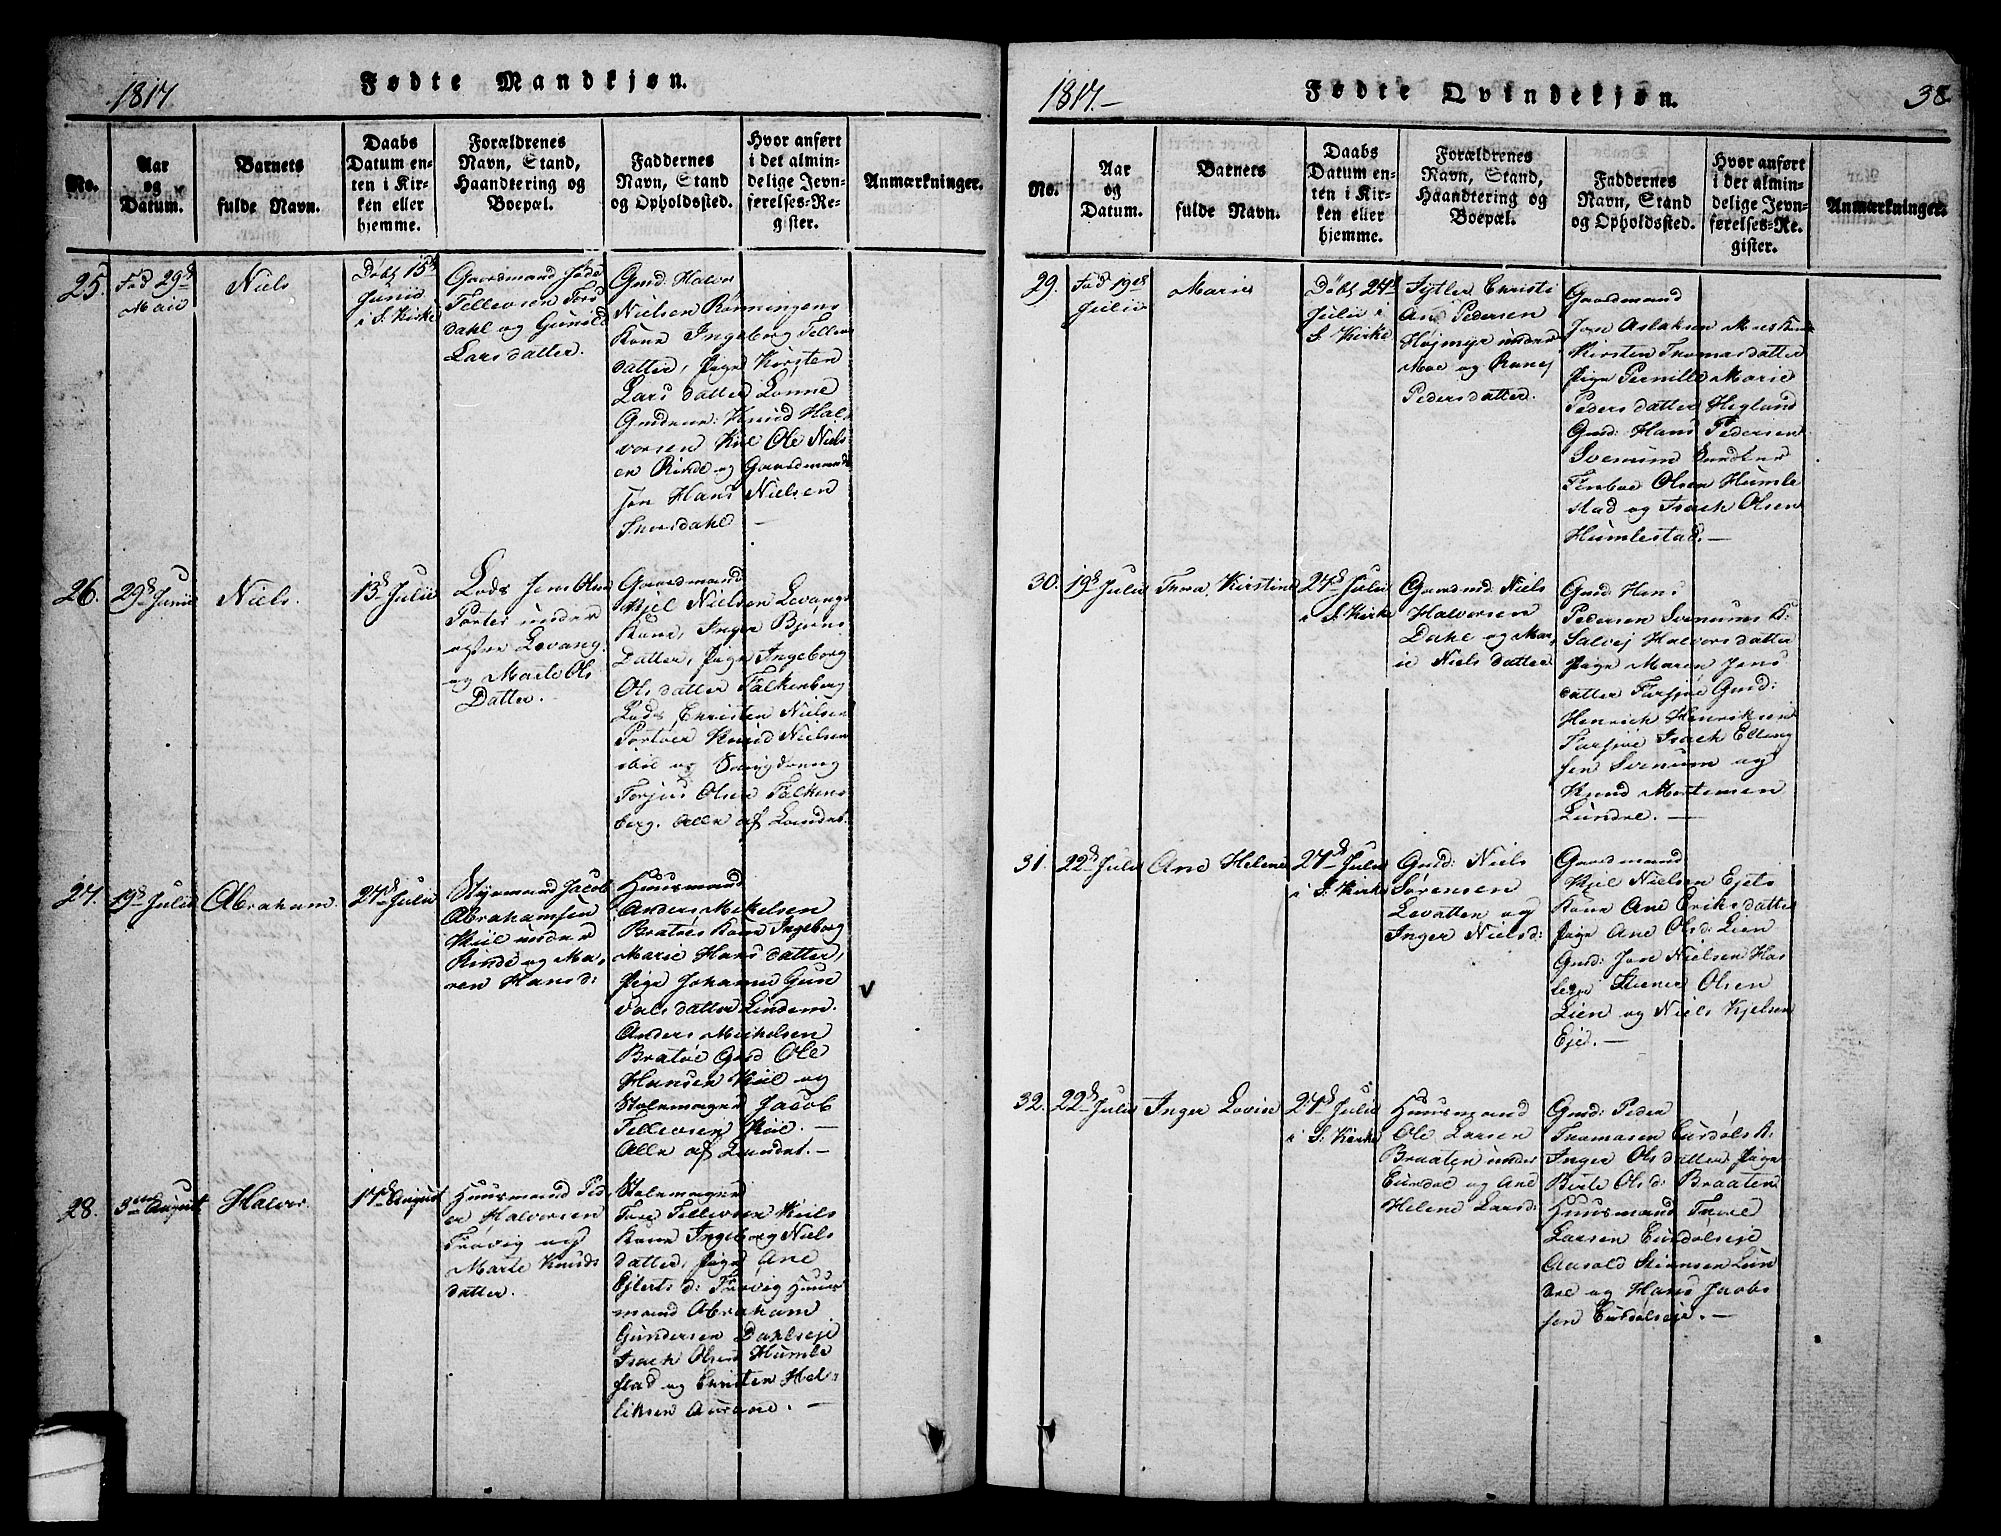 1817
Fødte Mandkjøn.
No.
Aar
og
Datum.
Barnets
fulde Navn.
Daabs
Datum en-
ten i Kir-
ken eller
hjemme.
Forældrenes
Navn, Stand,
Haandtering og
Boepæl.
Faddernes
Navn, Stand
og Opholdssted.
Hvor anført
i det almin-
delige Jevn-
førelses-Re-
gister.
Anmærkninger.
25.
Fød 29d
Maie
Niels
Døbt 15d
Junii
i S. Kirke
Gaardmand
Tellevsen Fors
dahl og Gunild
Larsdatter.
Gmd. Halvor
Nielsen Rønningens
Kone Ingeborg Tellevs
datter, Pige Kirsten
Lars datter Lønne
Gmdene: Knud Hal,
vorsen Kiil Ole Niels
en Rinde og Gaardmands
søn Hans Nielsen
Fuorsdahl —
26.
29d Junii
Niels.
13d Julii
Lods Jens Olsen
Portør under
øfre Levang
og Marte Ols
Datter.
Gaardmand
Kjel Nielsen Levangs
Kone, Inger Bjørns
Datter, Pige Ingeborg
Ols datter Falkenberg
Lods Christen Nielsen
Portøer Knud Nielsen
ibid og Ungdreng
Torjus Olsen Falkens
berg. Alle af Sandøe.
27.
19d Julii
Abraham.
27d Julii
Styrmand Jacob
Abrahamsen
Kiil under
Rinde og Ma,
ren Hansd:
Huusmand
Anders Mikelsen
Bratøes Kone Ingeborg
Marie Hans datter,
Pige Johanne Gun
valsdatter Lindem.
Anders Mikelsen
Bratøe Gmd Ole
Hansen Kiil og
Stolemager Jacob
Tellevsen Kiil. —
Alle af Sandøe. —
v
28.
3die August
Halvor.
17d August
Huusmand Ped
er Halvorsen
Frøvig og
Marte Knuds
datter.
Stolemager
Tore Tellevsen Kiils
Kone Ingeborg Niels
datter, Pige Ane
Ejlerts d: Frøvig Huus
mand Abraham
Gundersen Dahlseje
Isach Olsen Humle
stad og Christen Hel,
liksen Aurøe. —
1817. —
Fødte Qvindekjøn.
38
No.
Aar
og
Datum.
Barnets
fulde Navn.
Daabs
Datum en-
ten i Kir-
ken eller
hjemme.
Forældrenes
Navn, Stand,
Haandtering og
Boepæl.
Faddernes
Navn, Stand
og Opholdssted.
Hvor anført
i det almin-
delige Jevn-
førelses-Re-
gister.
Anmærkninger.
29.
Fød 19d
Julii
Marie
Døbt 27d
Julii i
S. Kirke
Christi
An Pedersen
Højmyr under
Moe og Ranej
Pedersdatter.
Gaardmand
Jon Aslaksen Moes Kone
Kirsten Thomasdatter
Pige Pernille Marie
Peders datter Heglund
Gmd: Hans Pedersen
Svenum
Olsen Humle
stad og Isach Olsen
Humlestad. —
30.
19d Julii
Thea Kirstine
27d Julii
i S. Kirke
Gaardmd. Niels
Halvorsen
Dahl og Mar,
ie Niels datter
Gmd Hans
Pedersen Svenums K:
Salvej Halvors datter
Pige Maren Jens
datter Farsjøe Gmd:
Henrich Henriksen
Farsjøe Isach Elling
sen Svenum og
Knud Mortensen
Lundre. —
31.
22d Julii
Ane Helene
27d Julii
i S. Kirke
Gmd: Niels
Sørensen
Levatten og
Inger Nielsd:
Gaardmand
Kjel Nielsen Ejets
Kone Ane Eriksdatter
Pige Ane Olsd: Lien
Gmd: Jon Nielsen Has
leje Steener Olsen
Lien og Niels Kjelsen
Eje. —
32.
22d Julii
Inger Lovise
27d Julii
i S. Kirke
Huusmand
Ole Larsen
Braaten under
Eurdøl og Ane
Helene Larsd:
Gmd: Peder
Thomasen Eurdøls K:
Inger Olsdatter, Pige
Birte Olsd: Braaten
Huusmand Thore
Larsen Eurdølseje
Aasold Steensen Lun
dre og Hans Jacobs
sen Eurdølseje. —